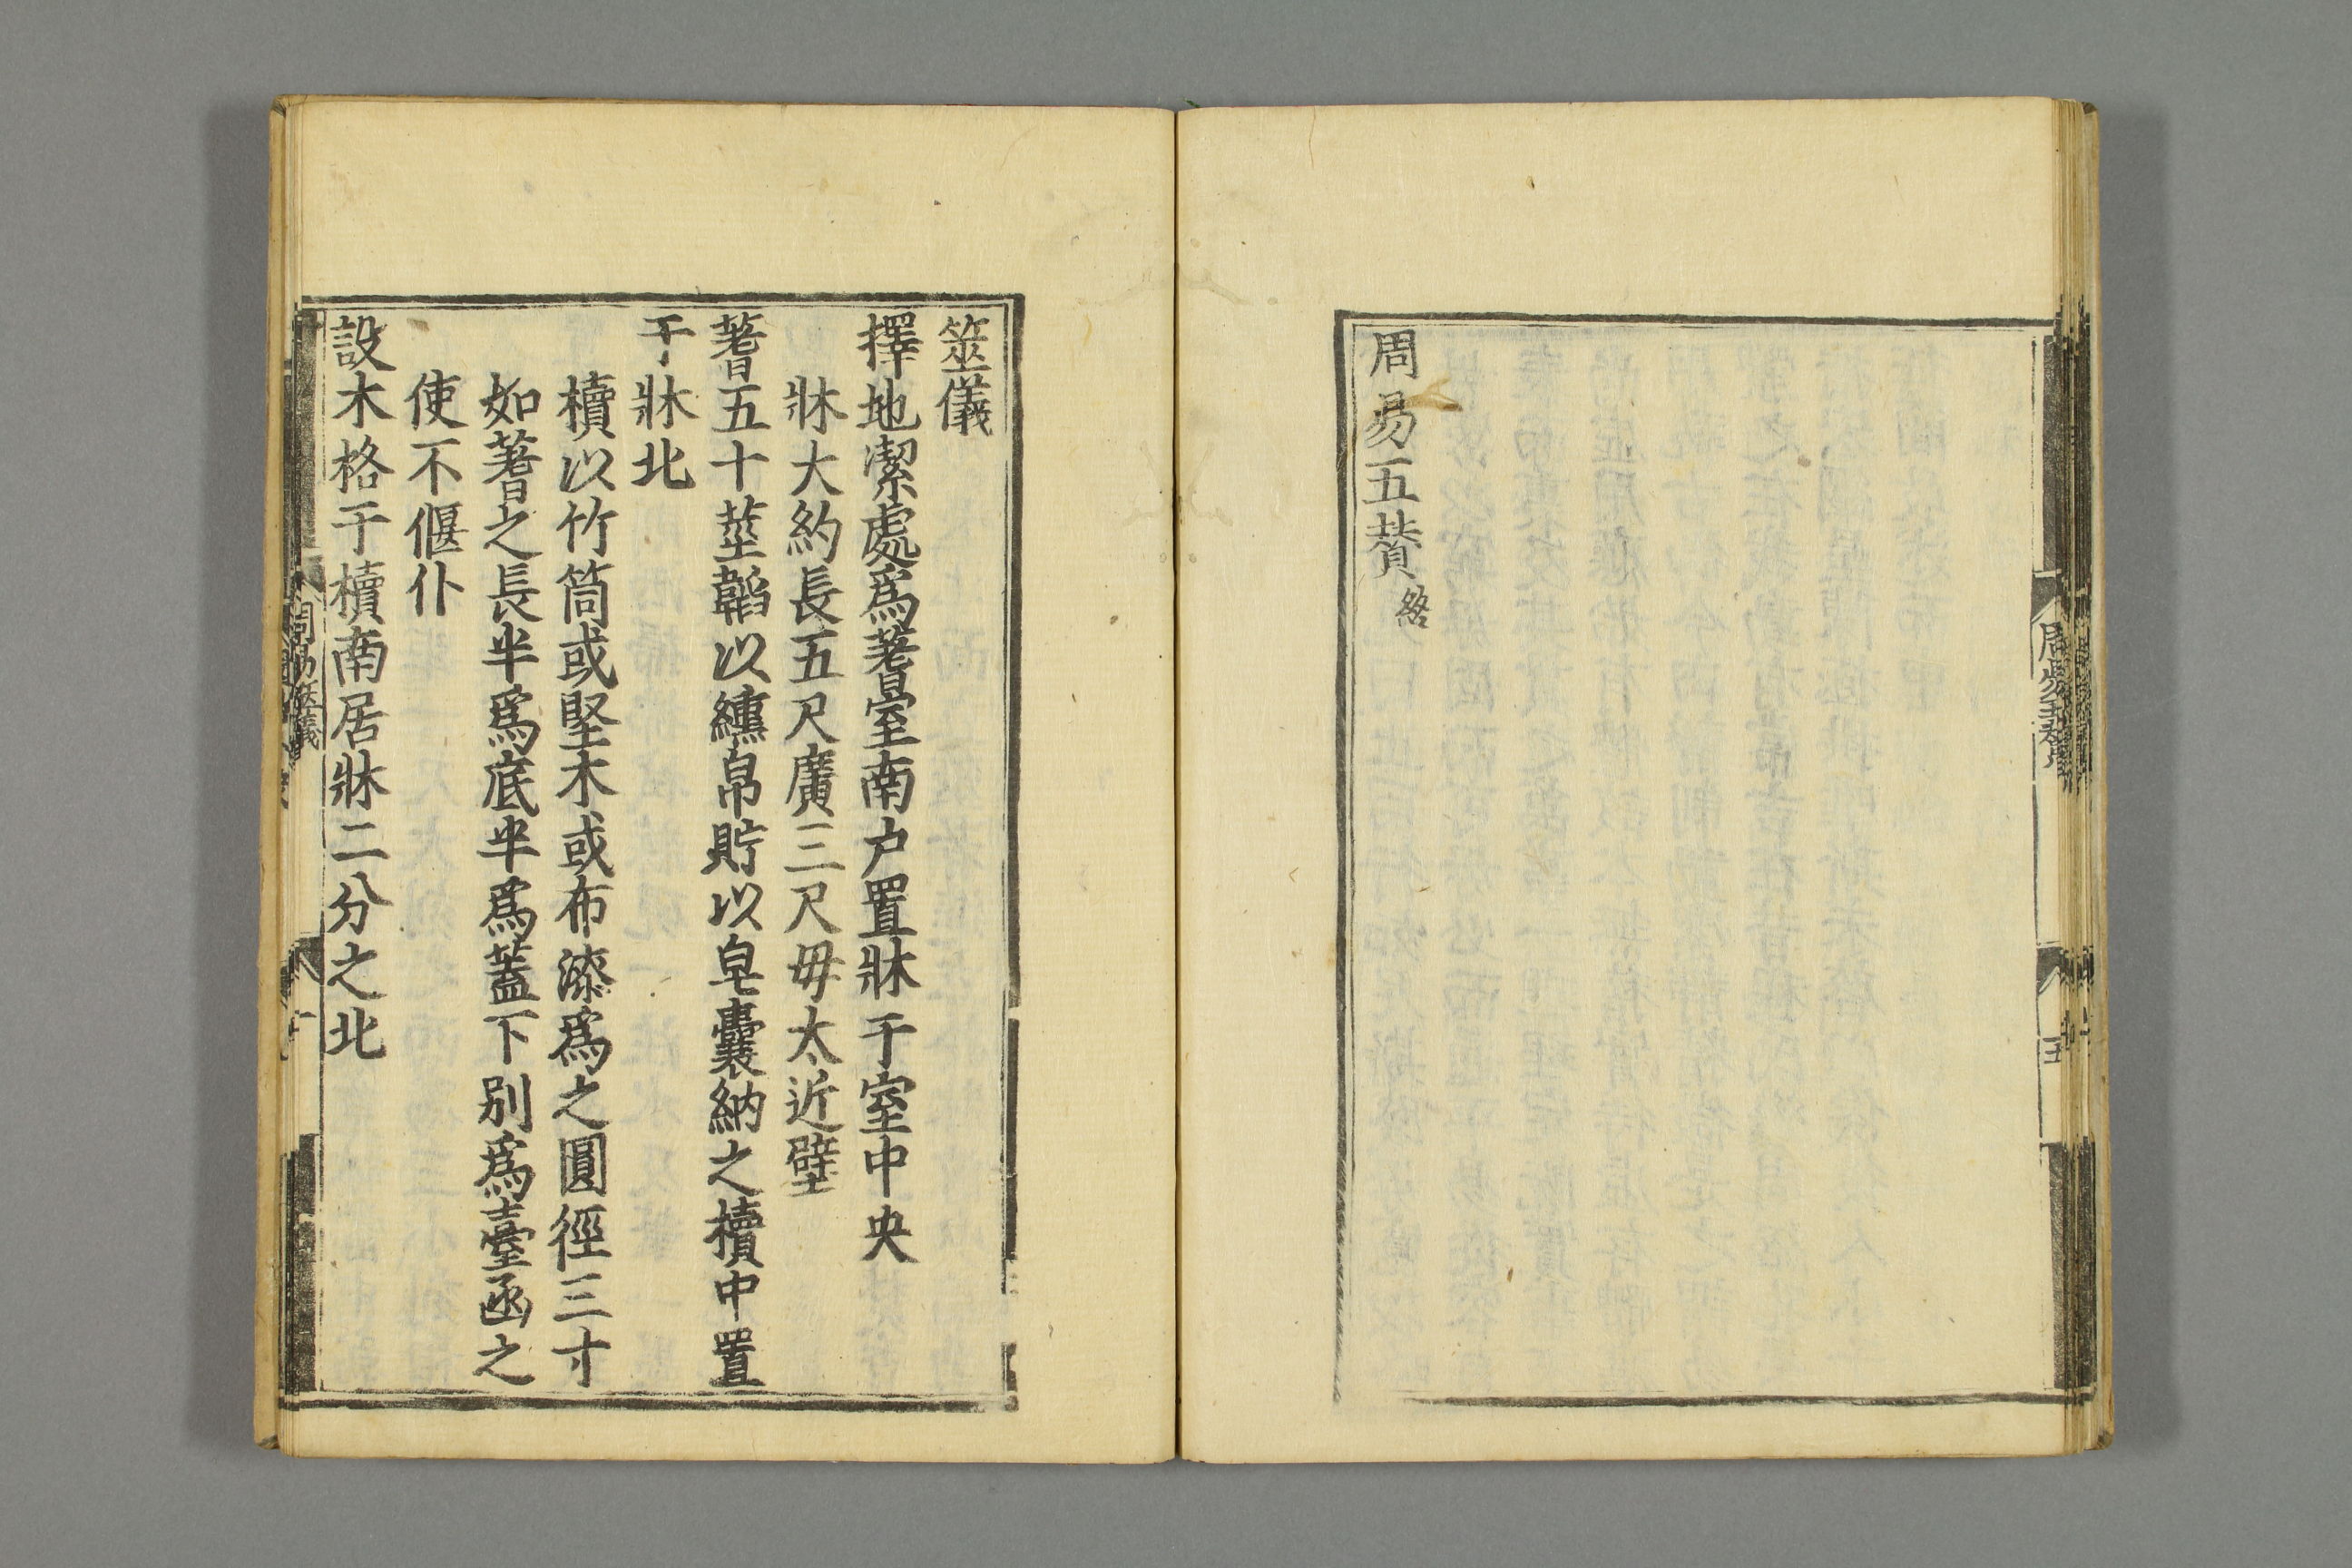 周易五賛 終
周易五賛
五
筮儀
擇地潔處爲蓍室南户置牀于室中央
牀大約長五尺廣三尺毋太近壁
蓍五十莖韜以纁帛貯以皂囊納之櫝中置
于牀北
櫝以竹筒或堅木或布漆爲之圓徑三寸
如蓍之長半爲底半爲蓋下别爲臺函之
使不偃仆
設木格于櫝南居牀二分之北
周易筮儀